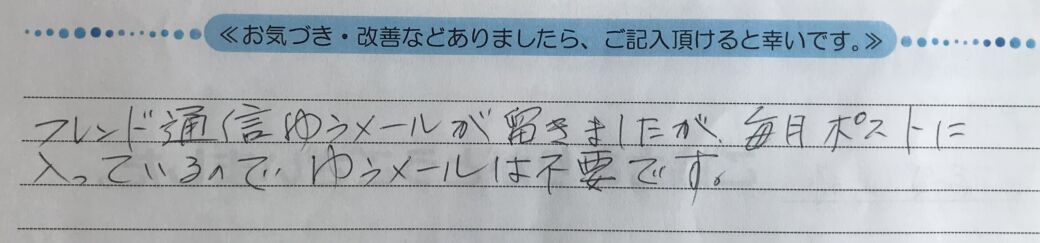 ≪お気づき・改善などありましたら、ご記入頂けると幸いです。≫
フレンド通信ゆうメールが留きましたが、毎月ポストに
入っているので、ゆうメールは不要です。